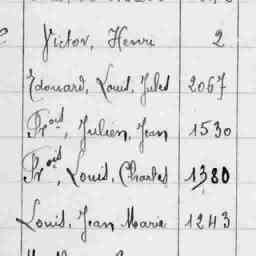 Victor, Henri 2
Edouard, Louis, Jules 2067
Fr.ois, Julien, Jean 1530
Fr.ois, Louis, Charles 1380
Louis, Jean Marie 1243